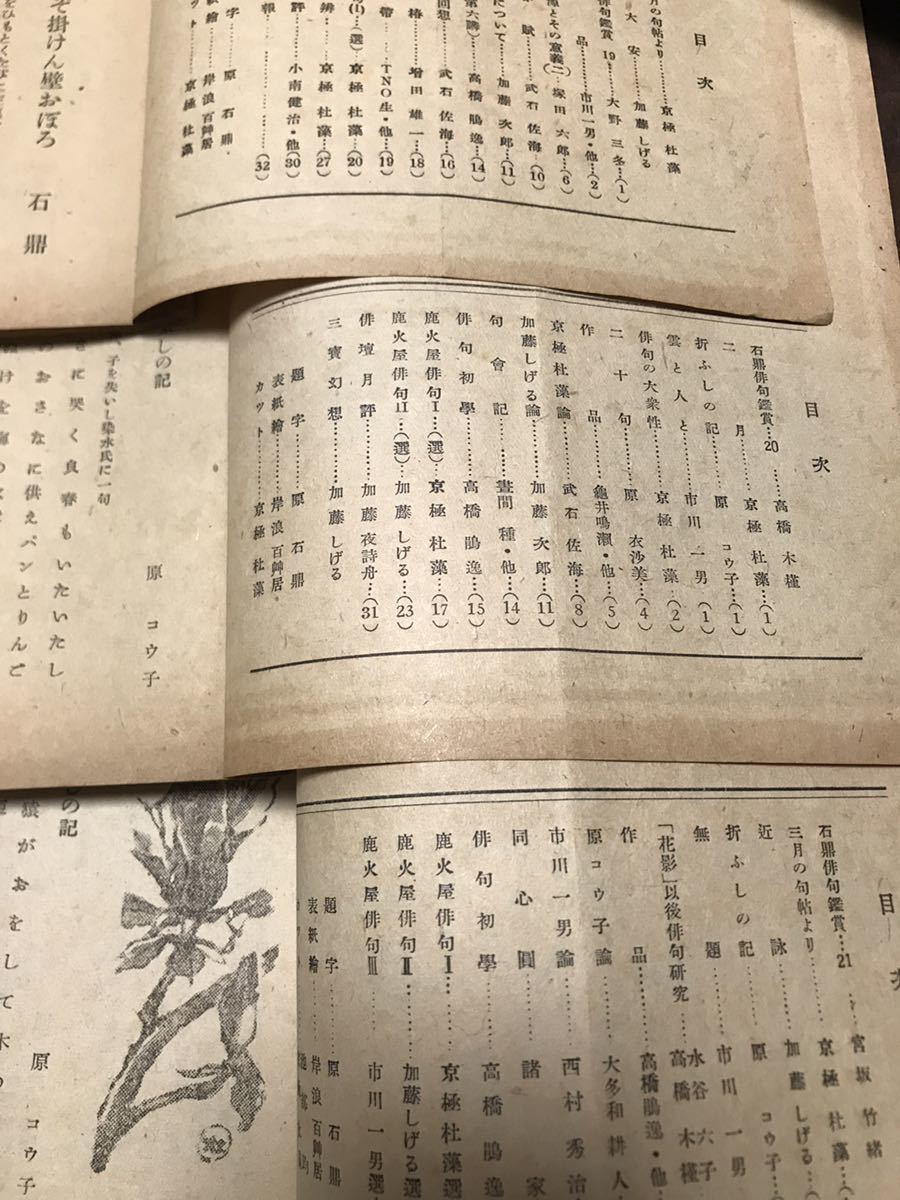 目次
月の句帖より……京極杜藻
大安……加藤しげる
俳句鑑賞 19……大野三冬…(1)
品……市川一男・他…(2)
とその意義(二)…塚田六郎…(6)
賦……武石佐海…(10)
について……加藤次郎…(11)
高橋鵙逸…(14)
回想……武石佐海…(16)
椿……増田雄一…(18)
TNO生・他…(19)
(1)(選)京極杜藻…(20)
辨……京極杜藻…(27)
評……小南健治・他(30)
報……(32)
題字……原石鼎
表紙繪……岸浪百艸居
カット……京極杜藻
そ掛けん壁おぼろ
石鼎
目次
石鼎俳句鑑賞…20……高橋木槿
二月……京極杜藻…(1)
折ふしの記……原コウ子…(1)
雲と人と……市川一男(1)
俳句の大衆性……京極杜藻…(2)
二十句……原衣沙美…(4)
作品……龜井鳴瀬・他…(5)
京極杜藻論……武石佐海…(8)
加藤しげる論……加藤次郎…(11)
句會記……晝間種・他…(14)
俳句初學……高橋鵙逸…(15)
鹿火屋俳句I…(選)…京極杜藻…(17)
鹿火屋俳句II…(選)…加藤しげる…(23)
俳壇月評……加藤夜詩舟…(31)
三寳幻想……加藤しげる
題字……原石鼎
表紙繪……岸浪百艸居
カット……京極杜藻
しの記
原コウ子
子を失いし染水氏に一句
に哭く良春もいたいたし
のおさなに供えパンとりんご
目次
石鼎俳句鑑賞…21……宮坂竹緒
三月の句帖より……京極杜藻…(1
近詠……加藤しげる…(
折ふしの記……原コウ子…(
無題……市川一男
「花影」以後俳句研究……水谷六子
高橋木槿
作品……高橋鵙逸・他
原コウ子論……大多和耕人
市川一男論……西村秀治
同心圓……諸家
俳句初學……高橋鵙逸
鹿火屋俳句I……京極杜藻選
鹿火屋俳句II……加藤しげる選
鹿火屋俳句III……市川一男選
題字……原石鼎
表紙繪……岸浪百艸居
しの記
原コウ子
猿がおをして木の